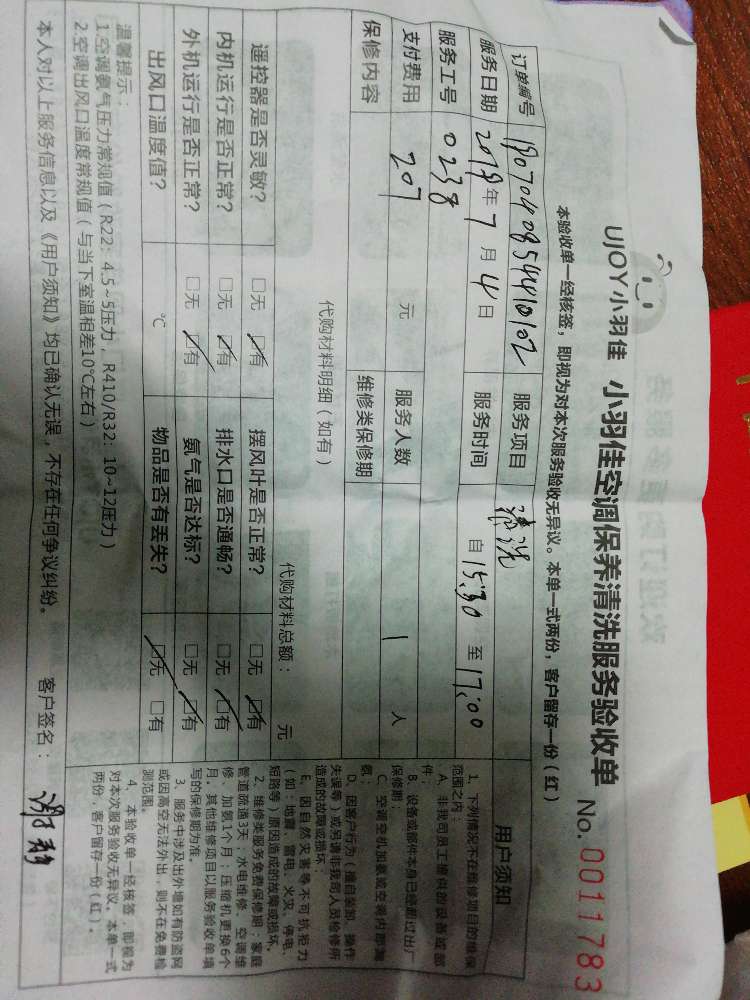 UJOY小羽佳 小羽佳空调保养清洗服务验收单 No.0011783
本验收单一经核签，即视为对本次服务验收无异议。本单一式两份，客户留存一份（红）
订单编号 服务项目 清洗
服务日期 2018年7月4日 服务时间 自15:30至17:00
服务工号 0238
支付费用 207 元 服务人数 1 人
保修内容 维修类保修期
代购材料明细（如有） 代购材料总额： 元
遥控器是否灵敏？ □无 □有 摆风叶是否正常？ □无 □有
内机运行是否正常？ □无 □有 排水口是否通畅？ □无 □有
外机运行是否正常？ □无 □有 氨气是否达标？ □无 □有
出风口温度值？ ℃ 物品是否有丢失？ □无 □有
温馨提示：
1.空调氨气压力常规值（R22：4.5~5压力，R410/R32：10~12压力）
2.空调出风口温度常规值（与当下室温相差10℃左右）
本人对以上服务信息以及《用户须知》均已确认无误，不存在任何争议纠纷。 客户签名：
用户须知
1、下列情况不在维修项目的维保
范围之内：
A、非我司员工提供的设备或部
件；
B、设备或部件本身已经超过出厂
保修期；
C、空调全机加氨或空调内部漏
氨；
D、因客户行为（擅自装卸、操作
失误等）或另请非我司人员检修所
造成的故障或损坏；
E、因自然灾害等不可抗拒力
（如：地震、雷电、火灾、停电、
短路等）原因造成的故障或损坏。
2、维修类服务免费保修期：家庭
管道疏通3天；水电维修、空调维
修、加氨1个月；压缩机更换6个
月，其他维修项目以服务验收单填
写的保修期为准。
3、服务中涉及出外墙如有防盗网
或因高空无法外出，则不在免费检
测范围。
4、本验收单一经核签，即视为
对本次服务验收无异议。本单一式
两份，客户留存一份（红）。